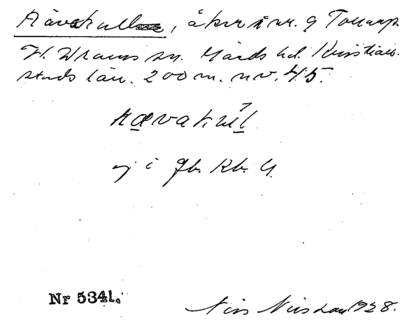 Rävakullen, åker i nr. 9 Tollarp
V. Vrams sn. Gärds hd. Kristian-
stads län. 200 m. nv. 45.
rævakúl
ej i Jb. Kb. G.
Nr 5341.
1928.